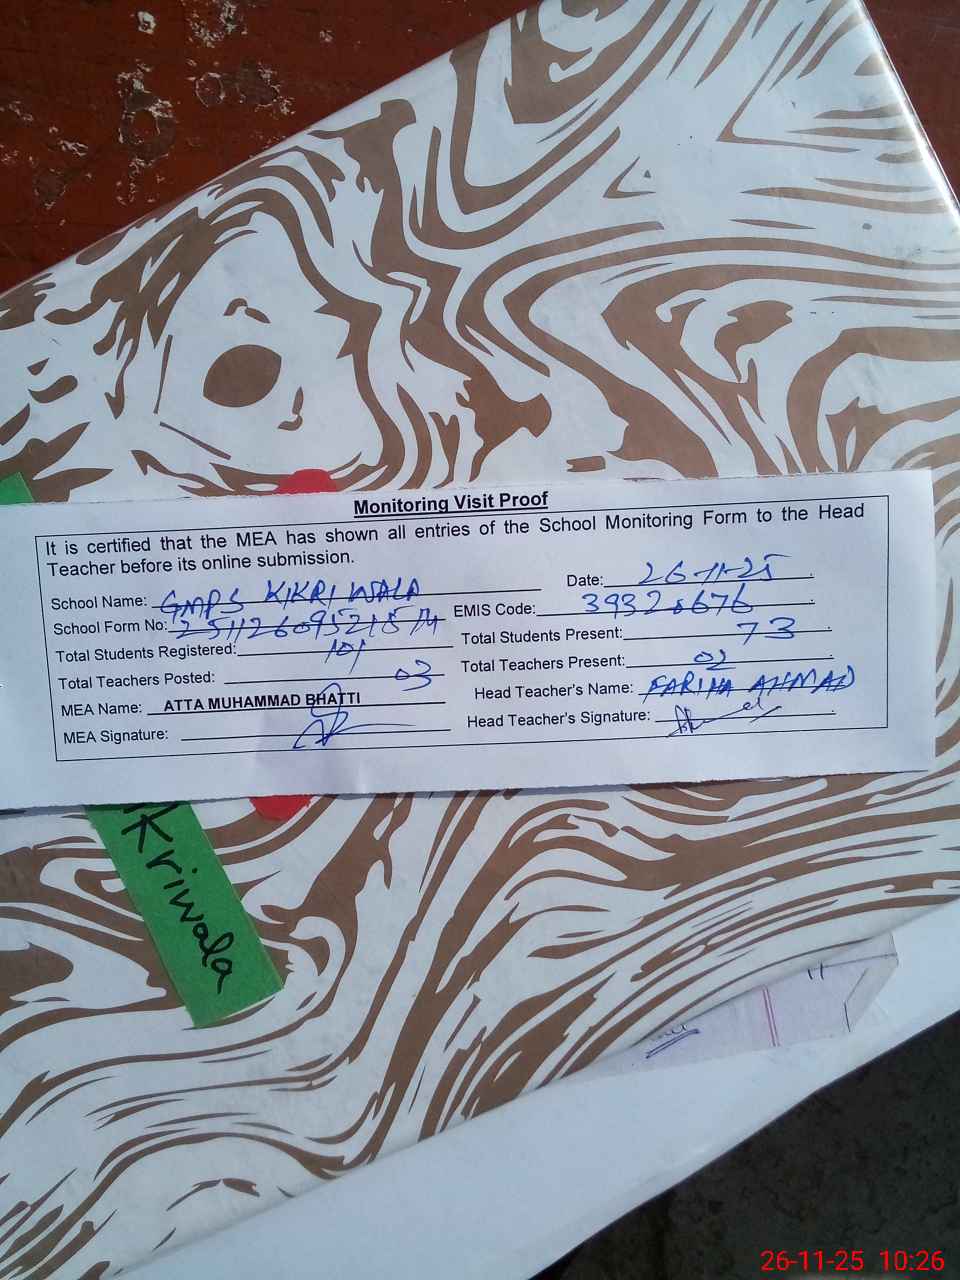 Monitoring Visit Proof
It is certified that the MEA has shown all entries of the School Monitoring Form to the Head
Teacher before its online submission.
School Name: GMPS KIKRI WALA Date: 26-11-25
School Form No: EMIS Code: 39320676
Total Students Registered: 101 Total Students Present: 73
Total Teachers Posted: 03 Total Teachers Present: 02
MEA Name: ATTA MUHAMMAD BHATTI Head Teacher's Name: FARIHA AHMAD
MEA Signature: Head Teacher's Signature:
Kriwala
26-11-25 10:26